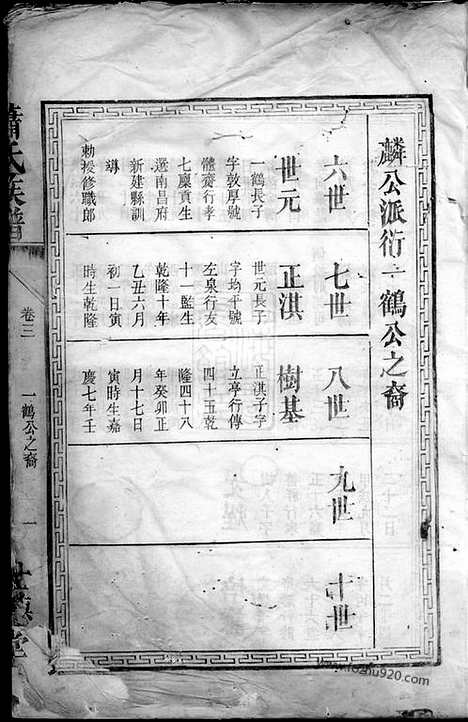 麟公派衍一鶴公之裔
六世
世元
一鶴長子
字敦厚號
體齋行孝
七廩貢生
選南昌府
新建縣訓
導
勅授修職郎
七世
正淇
世元長子
字均平號
左泉行友
十一監生
乾隆十年
乙丑六月
初一日寅
時生乾隆
八世
樹基
正淇子字
立亭行傳
四十五乾
隆四十八
年癸卯正
月十七日
寅時生嘉
慶七年壬
九世
十世
蕭氏族譜
卷三
一鶴公之裔
一
堂
www.lozhu920.com